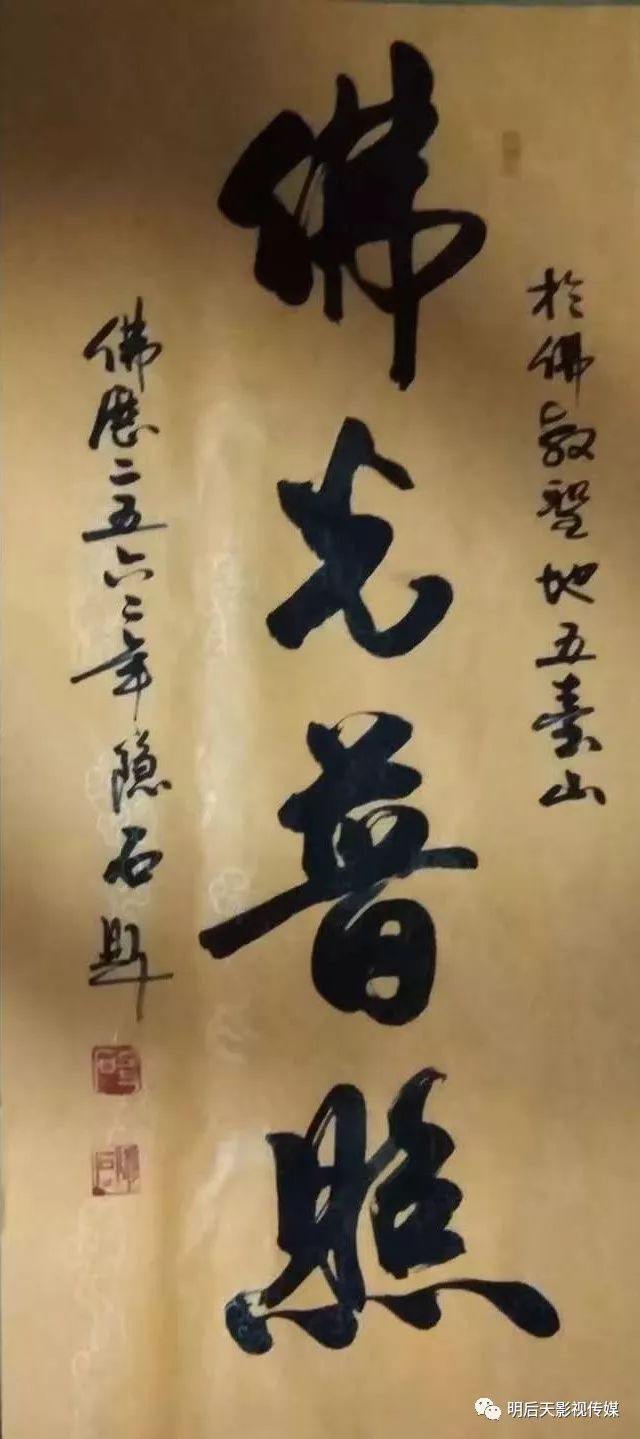 於佛教聖地五臺山
佛光普照
佛歷二五六二年隐石题
明后天影视传媒